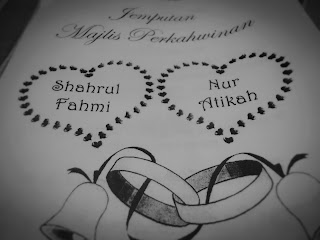 Jemputan
Majlis Perkahwinan
Shahrul
Fahmi
Nur
Atikah